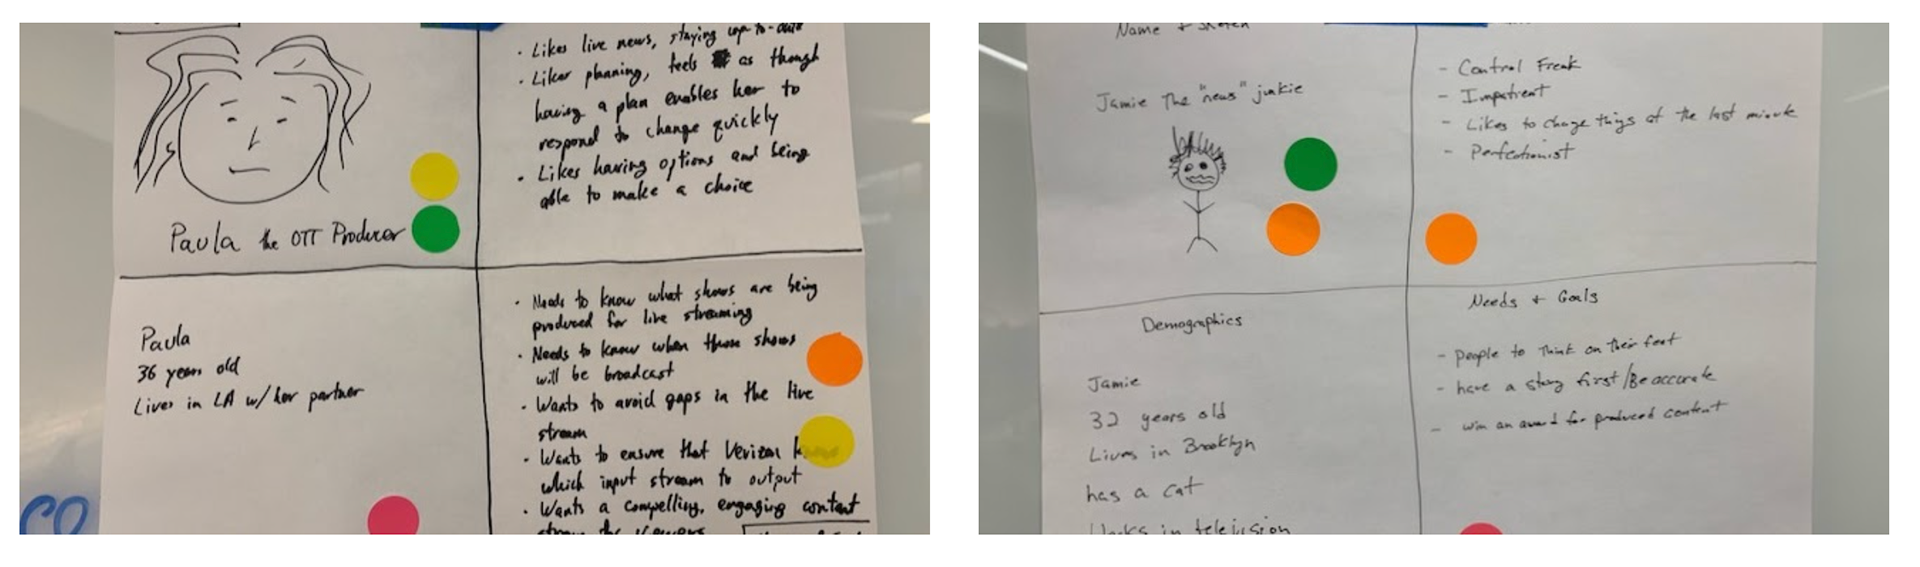 Paula the OTT Producer
· Likes live news, staying up-to-date
· Likes planning, feels as though
having a plan enables her to
respond to change quickly
· Likes having options and being
able to make a choice
Paula
36 years old
Lives in LA w/ her partner
· Needs to know what shows are being
produced for live streaming
· Needs to know when those shows
will be broadcast
· Wants to avoid gaps in the live
stream
· Wants to ensure that Verizon knows
which input stream to output
· Wants a compelling, engaging content
CO
Name + Sketch
Jamie The "news" junkie
- Control Freak
- Impatient
- Likes to change things at the last minute
- Perfectionist
Demographics
Jamie
32 years old
Lives in Brooklyn
has a cat
Works in television
Needs + Goals
- people to think on their feet
- have a story first/Be accurate
- win an award for produced content